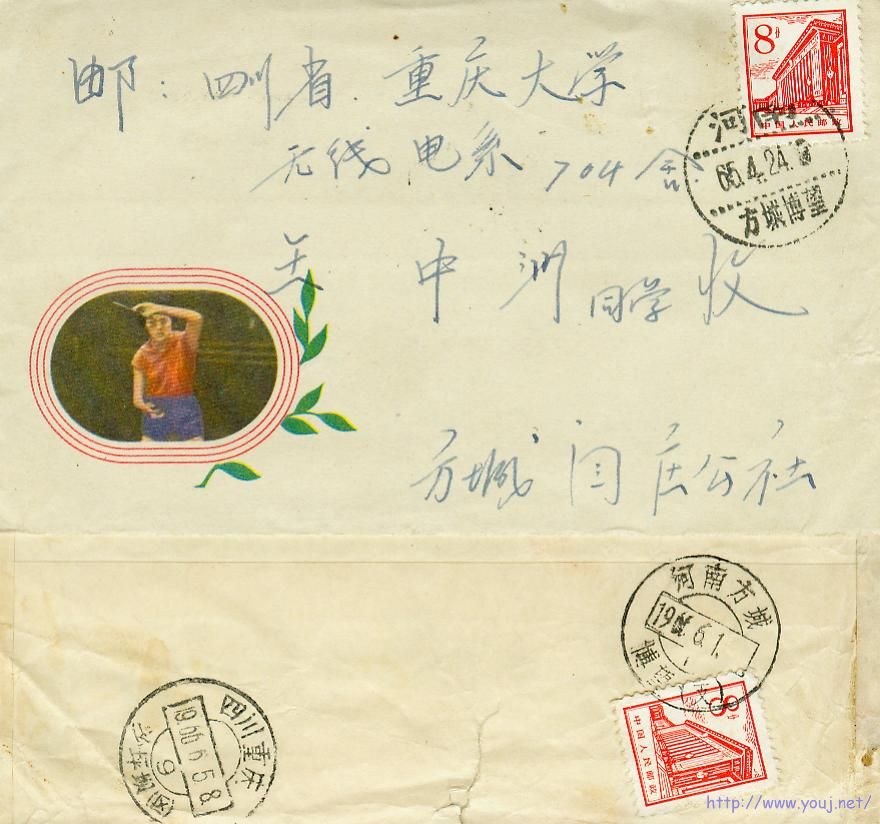 8分
中国人民邮政
河南
65.4.24.
方城博望
邮：四川省 重庆大学
无线电系 704舍
王中洲同学收
方城闫庄公社
河南方城
博望(支)
8分
中国人民邮政
四川重庆
1966.6.5.8
http://www.youj.net/